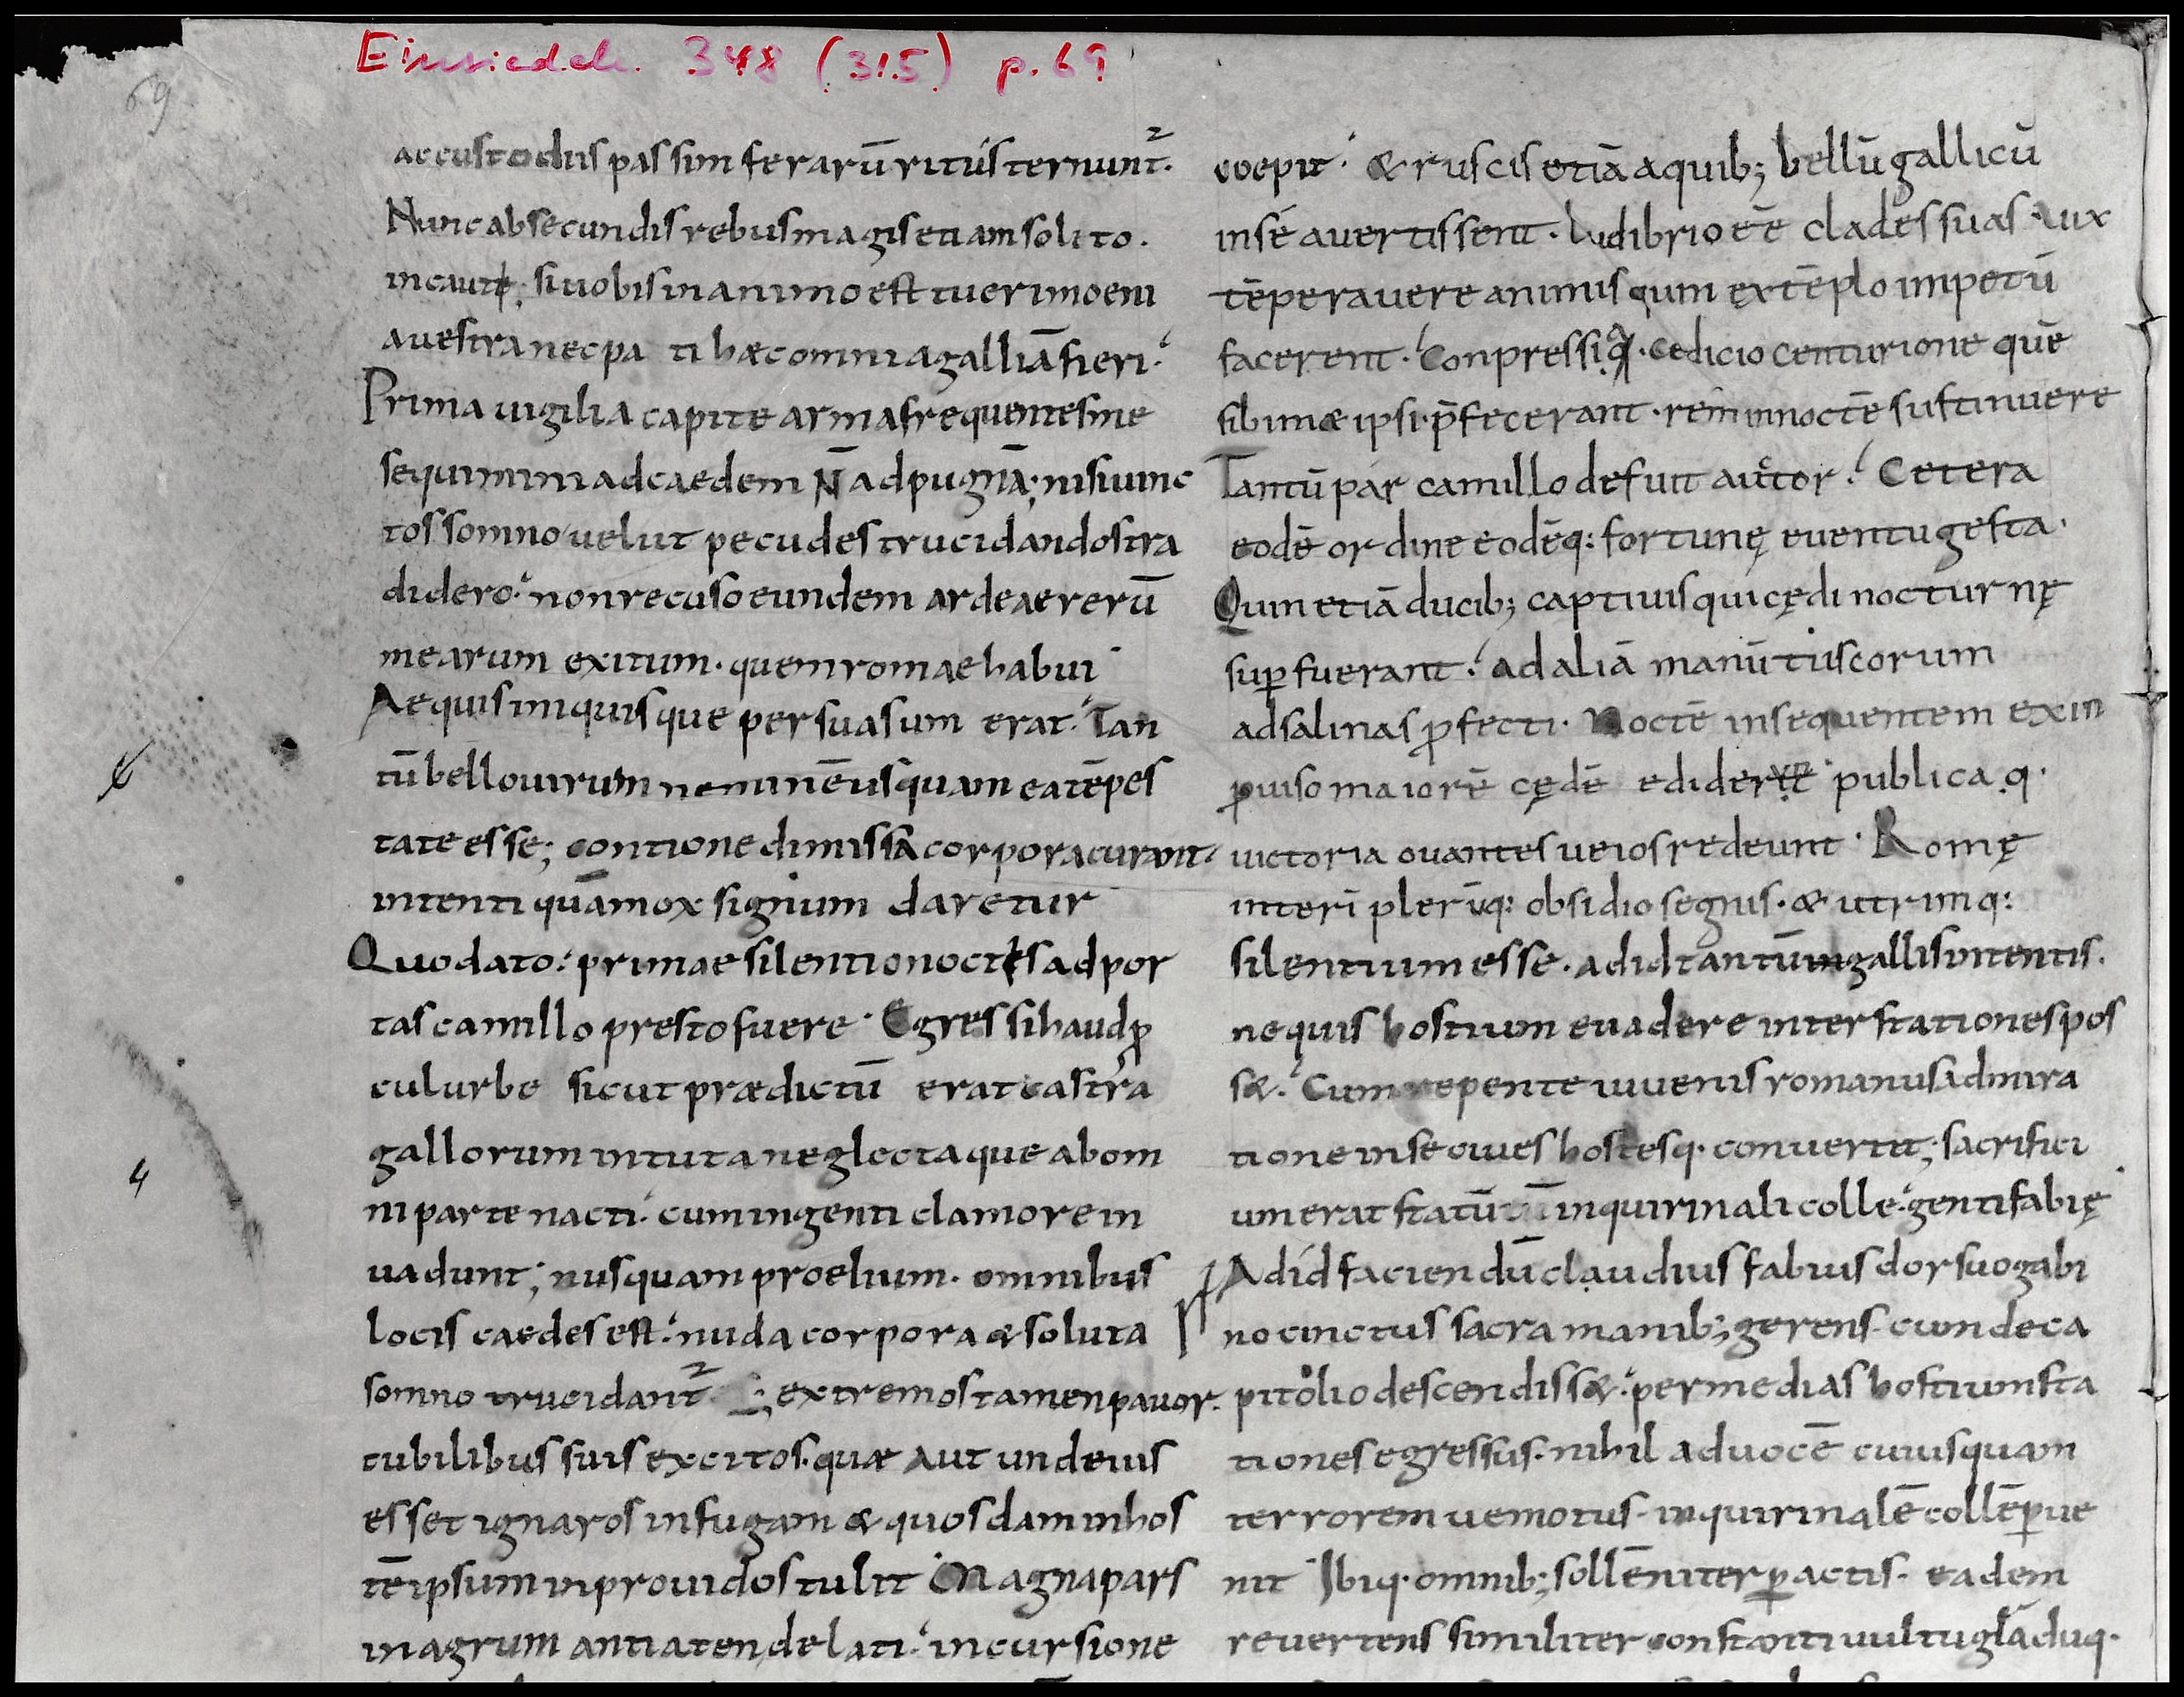 Einsiedeln. 348 (315) p. 69
69
ac custodiis passim ferarū ritu sternunt².
Nunc ab secundis rebus magis etiam solito.
incaute; si uobis in animo est tueri moeni
a uestra nec pa ti hæc omnia galliā fieri.
Prima uigilia capite arma frequentes me
sequimini ad caedem N̄ ad pugnā; nisi uinc
tos somno uelut pecudes trucidandos tra
didero. non recuso eundem ardeae rerū
mearum exitum. quem romae habui
Aequis iniquisque persuasum erat. Tan
tū bello uirum neminē usquam ea tēpes
tate esse; contione dimissa corpora curant.
intenti quā mox signum daretur
Quo dato. primae silentio noctis ad por
tas camillo presto fuere. Egressi haud p
cul urbe sicut prædictū erat castra
gallorum intuta neglectaque ab om
ni parte nacti. cum ingenti clamore in
uadunt; nusquam proelium. omnibus
locis caedes est. nuda corpora & soluta
somno trucidant². ; extremos tamen pauor.
cubilibus suis excitos. quæ aut unde uis
esset ignaros in fugam & quosdam in hos
tē ipsum inprouidos tulit Magna pars
in agrum antiaten delati. incursione
coepit. & ruscis etiā a quib; bellū gallicū
in se auertissent. ludibrio eē clades suas Vix
tēperauere animis quin extēplo impetū
facerent. Conpressi q. Cedicio centurione quē
sibimæ ipsi. p̄fecerant. rem in noctē sustinuere
Tantū par camillo defuit auctor. Cetera
eodē ordine eodēq: fortunę euentu gesta.
Quin etiā ducib; captiuis qui cędi nocturnę
sup fuerant. ad aliā manū tuscorum
ad salinas pfecti. Noctē insequentem ex in
puiso maiorē cędē edidere publicaq.
uictoria ouantes ueios redeunt. Romę
interī plerūq: obsidio segnis. & utrimq:
silentium esse. ad id tantū gallis intentis.
ne quis hostium euadere inter stationes pos
s&. Cum repente iuuenis romanus admira
tione in se ciues hostesq. conuertit; sacrifici
um erat statū in quirinali colle. genti fabię
Ad id faciendū claudius fabius dorsuo gabi
no cinctus sacra manib; gerens. cum de ca
pitolio descendiss&. per medias hostium sta
tiones egressus. nihil ad uocē cuiusquam
terroremue motus. in quirinalē collē pue
nit Ibiq. omnib; sollēniter pactis. eadem
reuertens similiter constanti uultu gladuq.